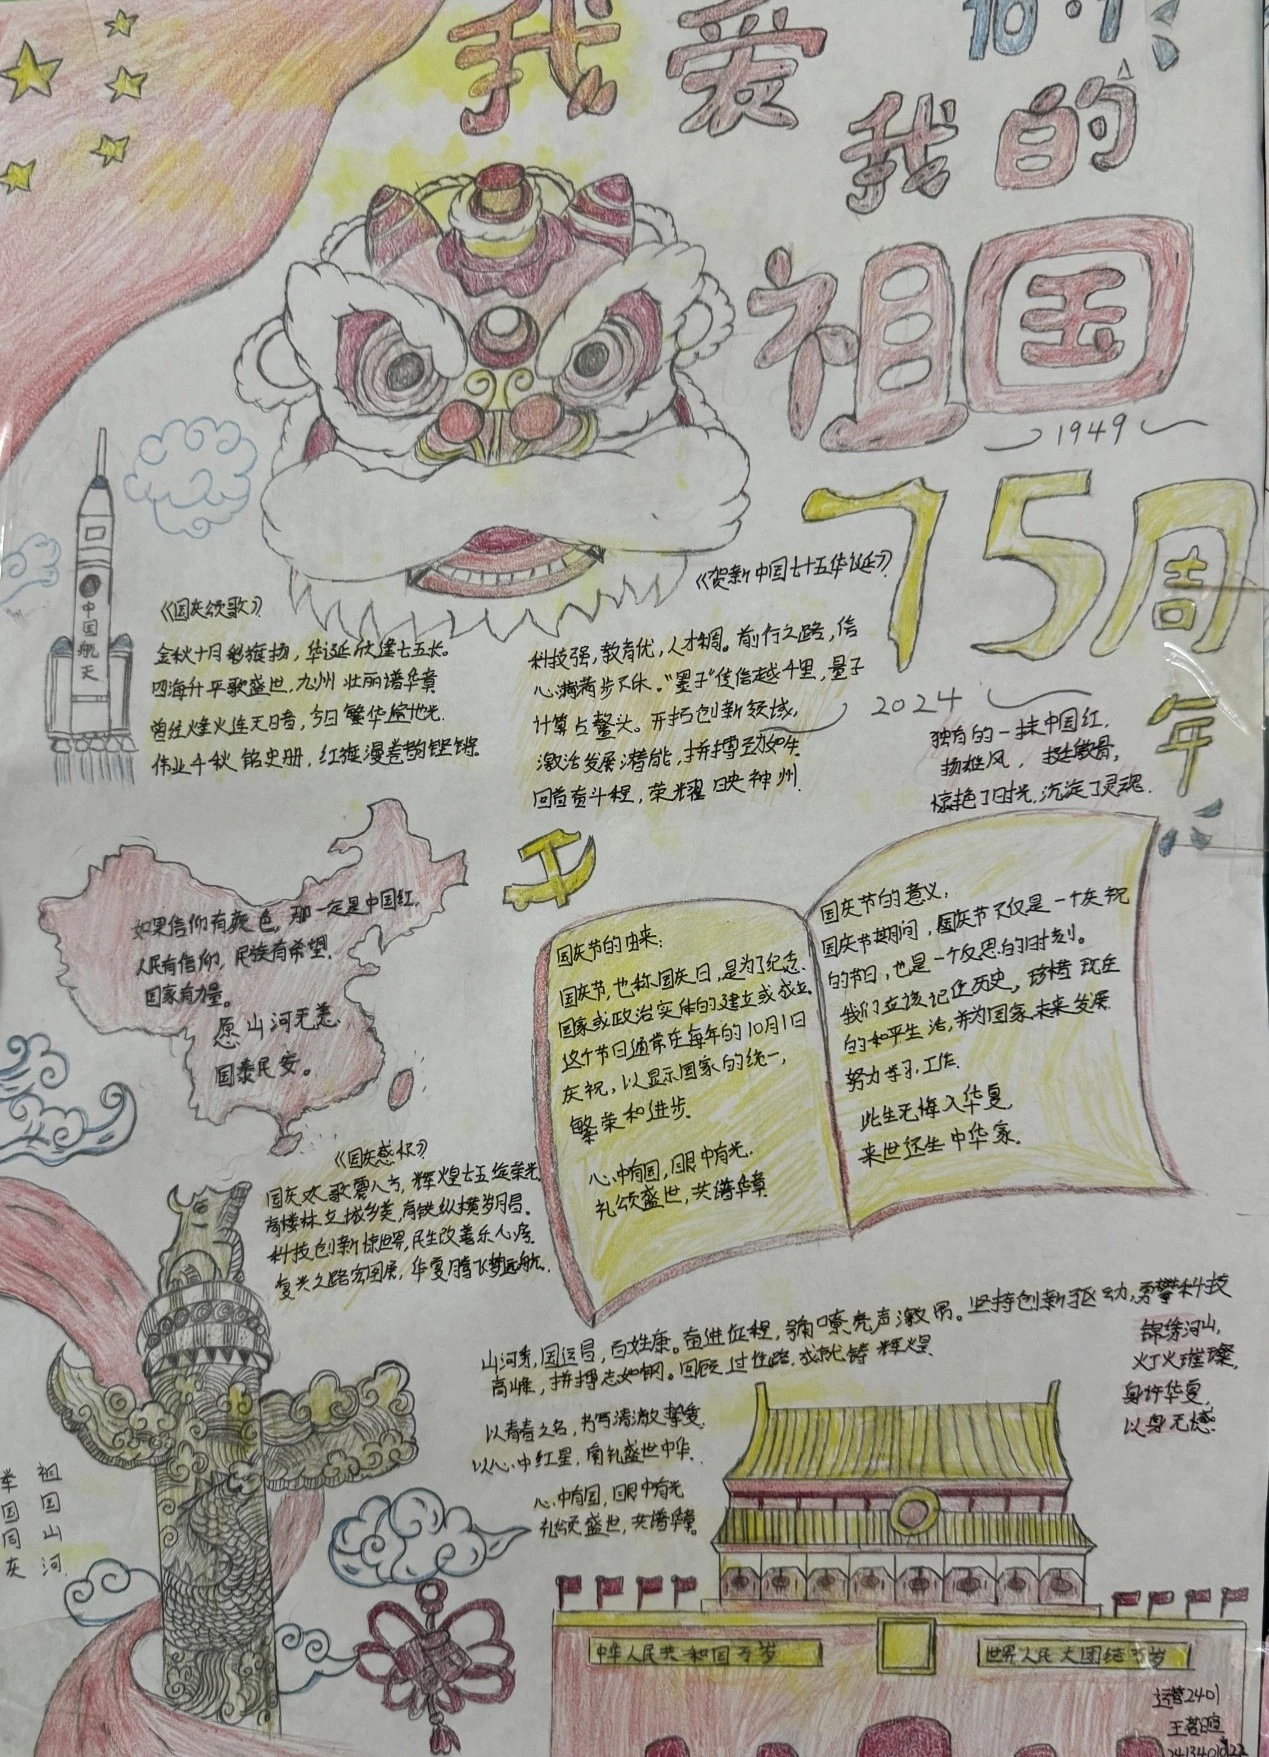 10·1
我爱
我的
祖国
1949
75周
年
2024
中国航天
《国庆颂歌》
金秋十月彩旗扬,华诞欣逢七五长。
四海升平歌盛世,九州壮丽谱华章
曾经烽火连天日
伟业千秋铭史册,红旗漫卷韵铿锵。
《贺新中国七十五华诞》
科技强,教育优,人才稠。前行之路,信
心满满步不休。"墨子"传信越千里,量子
计算占鳌头。开拓创新领域,
激活发展潜能,拼搏劲如牛
回首奋斗程,荣耀映神州.
独有的一抹中国红,
扬雄风,挺傲骨,
惊艳了时光,沉淀了灵魂.
如果信仰有颜色,那一定是中国红.
人民有信仰,民族有希望.
国家有力量。
愿山河无恙.
国泰民安。
国庆节的由来:
国庆节,也称国庆日,是为了纪念
国家或政治实体的建立或成立.
这个节日通常在每年的10月1日
庆祝,以显示国家的统一,
繁荣和进步.
心中有国,眼中有光.
礼颂盛世,共谱华章
国庆节的意义.
国庆节期间,国庆节不仅是一个庆祝
的节日,也是一个反思的时刻。
我们应该记住历史,珍惜现在
的和平生活,并为国家未来发展
努力学习,工作.
此生无悔入华夏,
来世还生中华家.
《国庆感怀》
国庆欢歌震八方,辉煌七五绽荣光
高楼林立城乡美,高铁纵横岁月昌.
科技创新惊世界,民生改善乐心房
复兴之路宏图展,华夏腾飞梦远航.
山河秀,国运昌,百姓康。奋进征程,号角嘹亮声激昂。坚持创新驱动,勇攀科技
高峰,拼搏志如钢。回顾过往路,成就铸辉煌
锦绣河山,
灯火璀璨,
身许华夏,
以身无憾.
以青春之名,书写清澈挚爱.
以心中红星,肩扎盛世中华.
心中有国,眼中有光
礼颂盛世,共谱华章。
祖国山河
举国同庆
中华人民共和国万岁
世界人民大团结万岁
运营2401